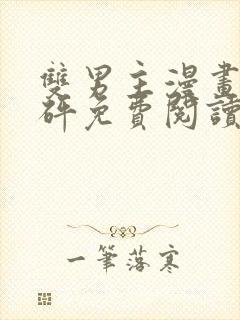 雙男主漫畫
砰免費閱讀
一筆落寒